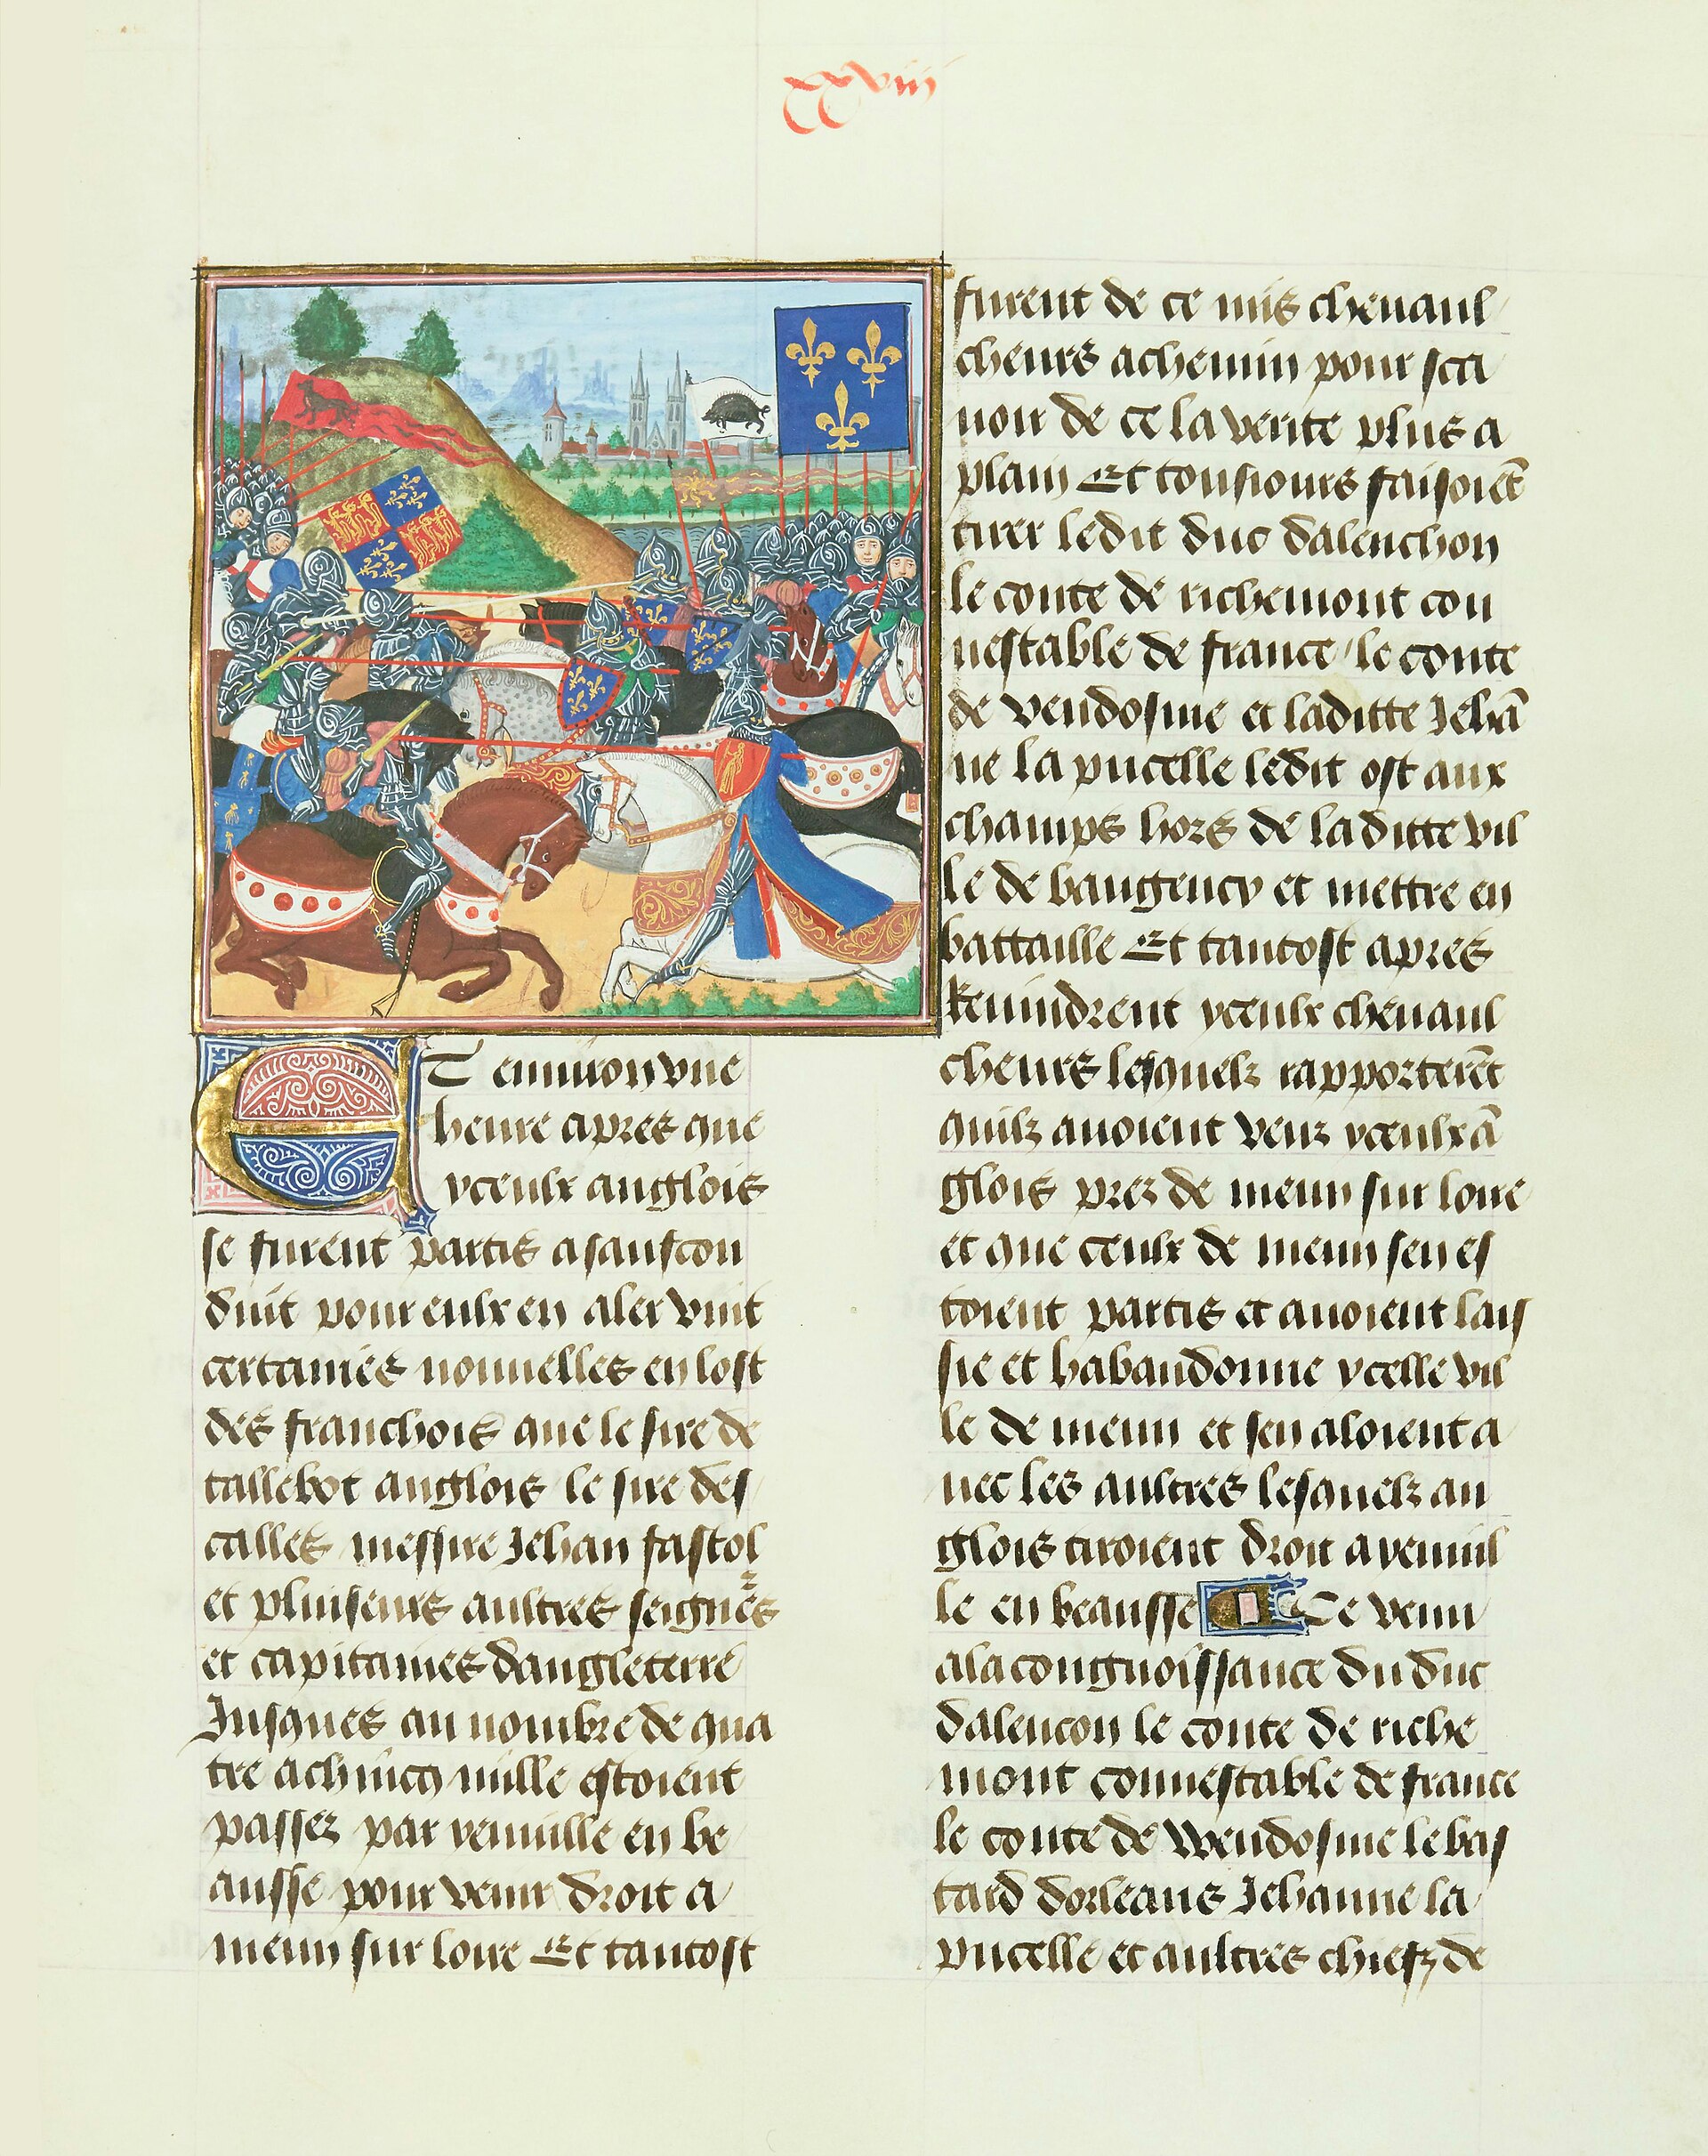 xxviii
Et enuiron vne
heure apres que
yceulx anglois
se furent partis a saufcon
duit pour eulx en aler vint
certaines nouuelles en lost
des franchois que le sire de
tallebot anglois le sire des
calles messire Jehan fastol
et pluiseurs aultres seignrēs
et capitaines dangleterre
Jusques au nombre de qua
tre a chincq mille estoient
passez par yenuille en be
ausse pour venir droit a
meun sur loire Et tantost
furent de ce mis cheuaul
cheurs a chemin pour sca
uoir de ce la verite plus a
plain Et tousiours faisoiēt
tirer ledit duc dalenchon
le conte de richemont con
nestable de france / le conte
de vendosme et laditte Jehā
ne la pucelle ledit ost aux
champs hors de laditte vil
le de baugency et mettre en
battaille Et tantost apres
Reuindrent yceulx cheuaul
cheurs lesquelz rapporterēt
quilz auoient veuz yceulx ā
glois prez de meun sur loire
et que ceulx de meun sen es
toient partis et auoient lais
sie et habandonne ycelle vil
le de meun et sen aloient a
uec les aultres lesquelz an
glois tiroient droit a yenuil
le en beausse Ce venu
a la congnoissance du duc
dalencon le conte de riche
mont connestable de france
le conte de Wendosme le bas
tard dorleans Jehanne la
pucelle et aultres chiefz de